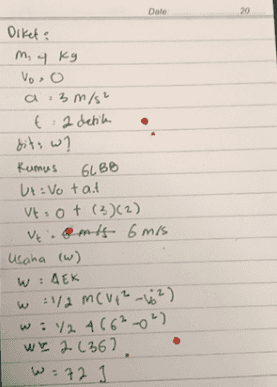 Date 20
Diket :
m, 4 kg
Vo, 0
a : 3 m/s²
t : 2 detik
dit : w?
Rumus GLBB
Vt : Vo + a.t
Vt : 0 + (3)(2)
Vt : 6 m/s
Usaha (w)
w : ΔEK
w : 1/2 m(Vt² - Vo²)
w : 1/2 4 (6² - 0²)
w = 2 (36)
w = 72 J